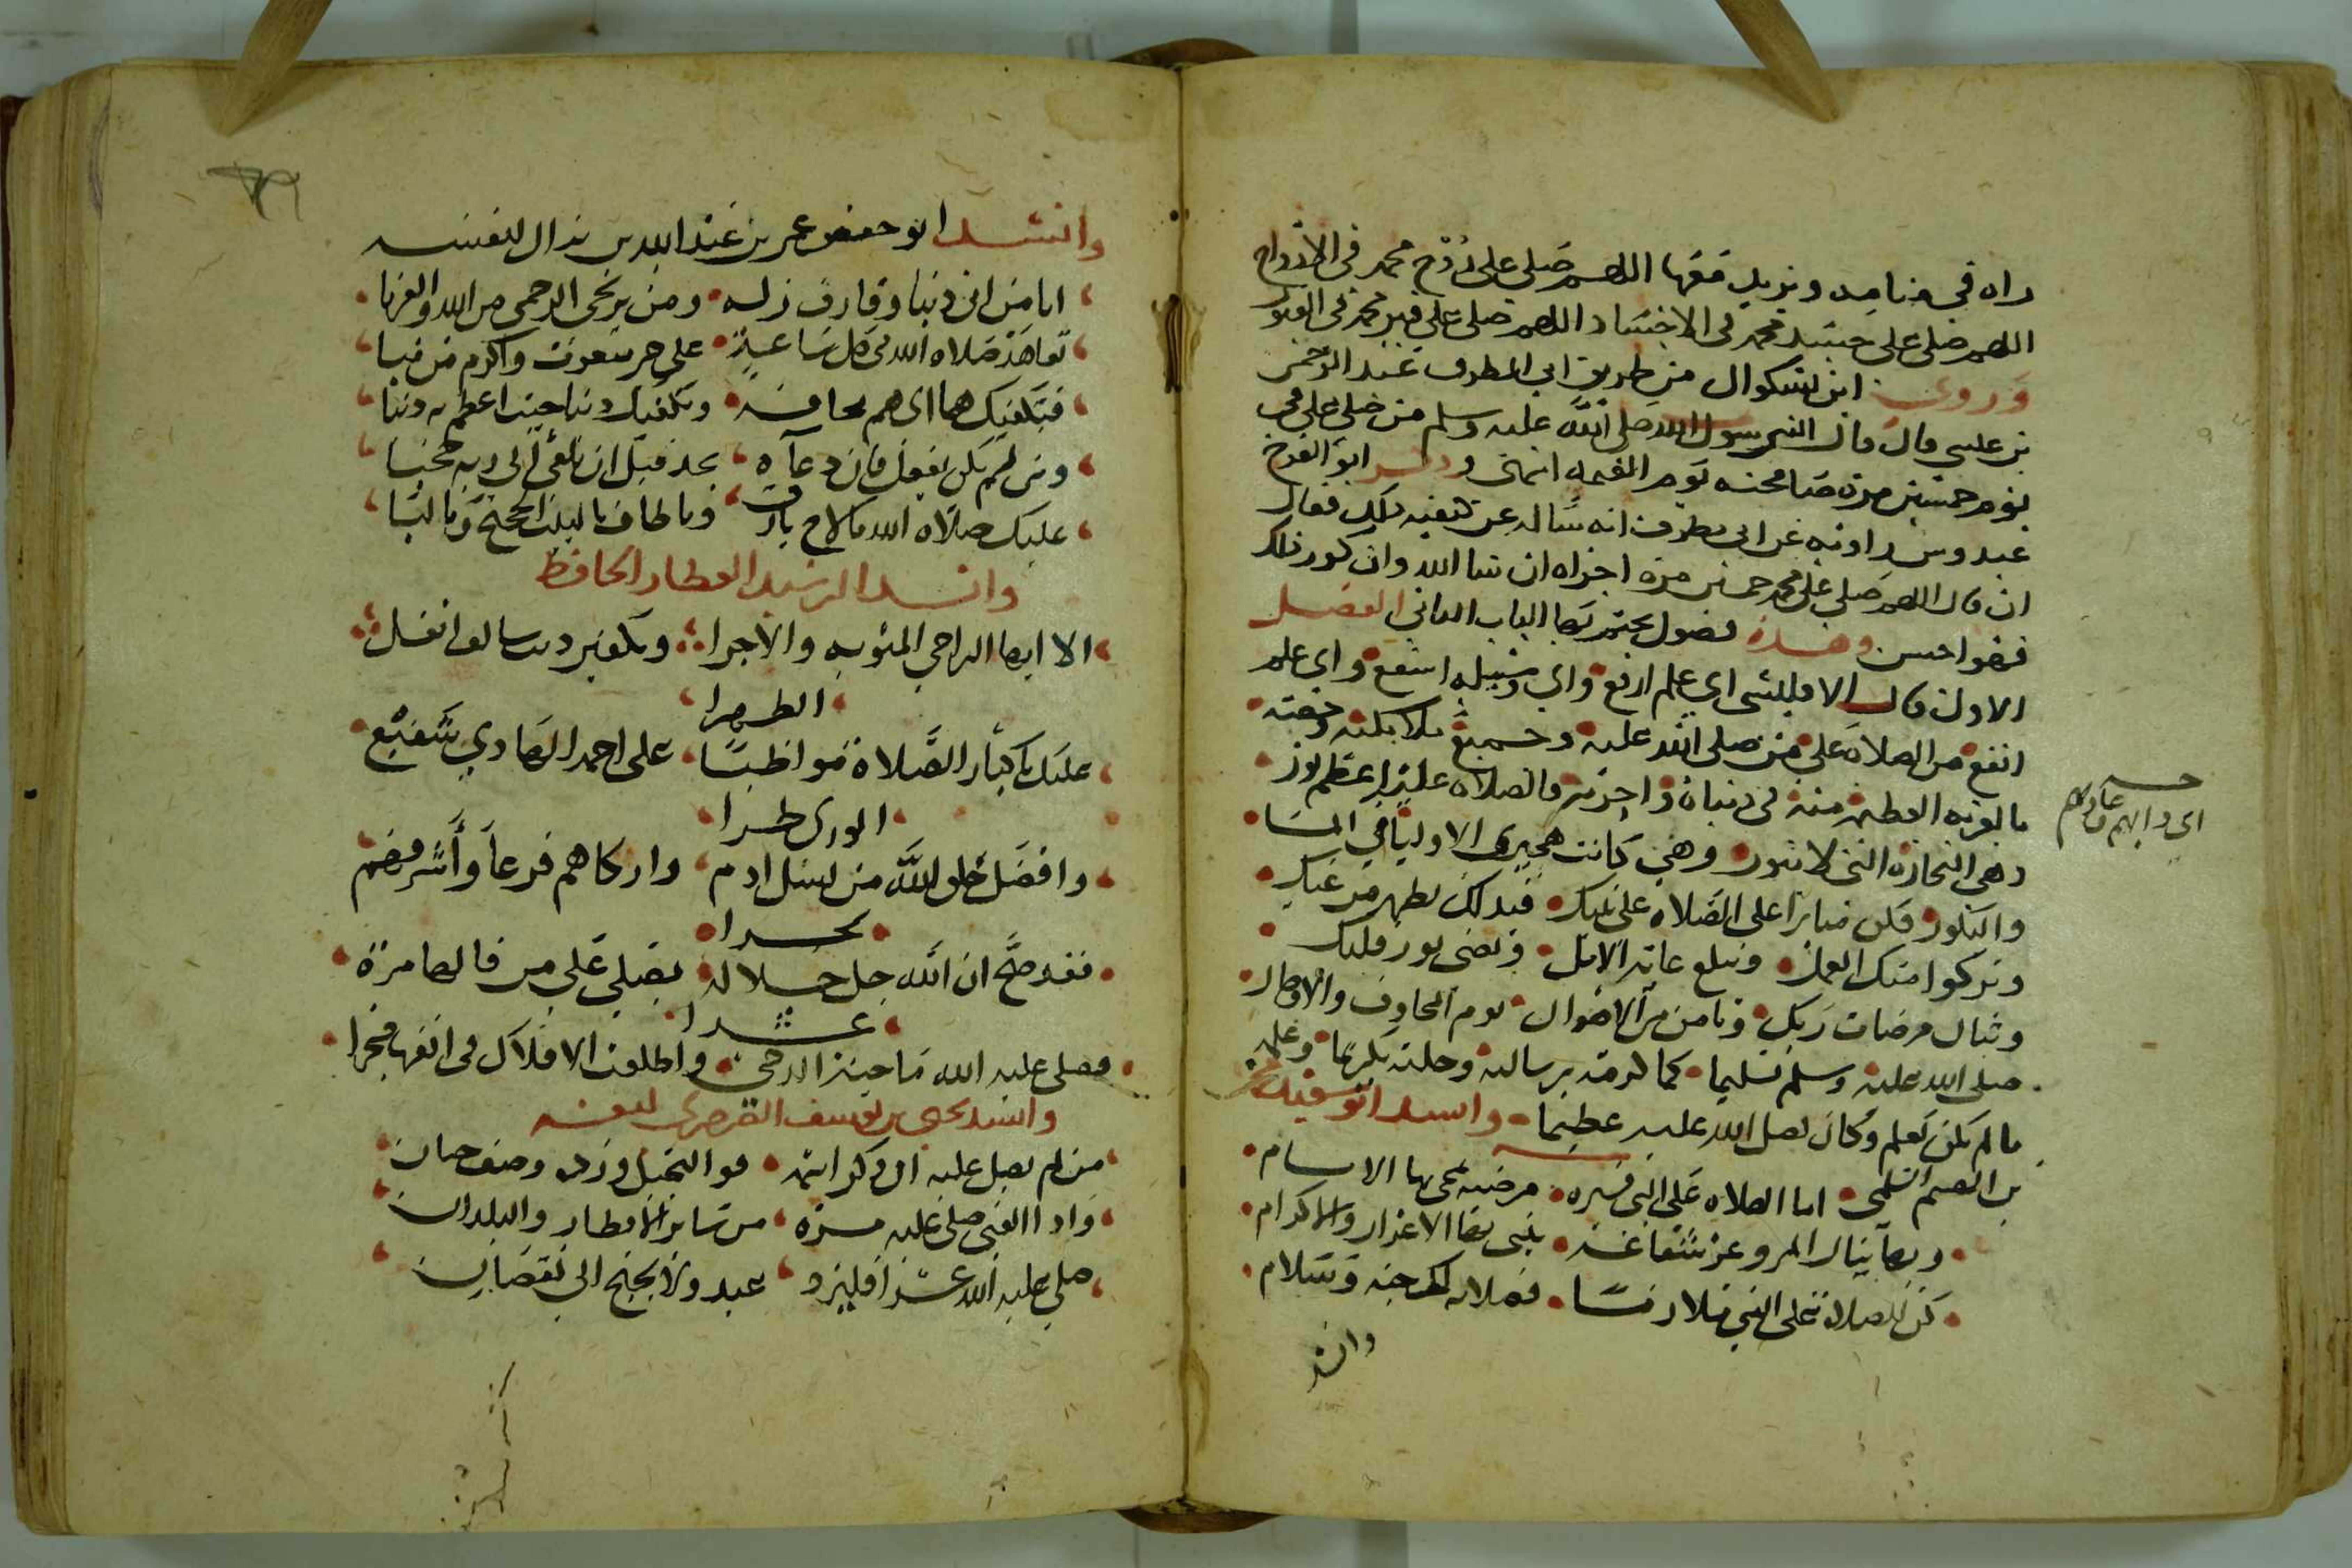 راه في منامه ويزيد معها اللهم صلي على روح محمد في الارواح
اللهم صلى على جسد محمد في الاجساد اللهم صلى على قبر محمد في القبور
وروى ابن بشكوال من طريق ابي المطرف عبد الرحمن
بن عيسى قال قال النبي رسول الله صلى الله عليه وسلم من صلى علي في
يوم خمسين مرة صافحته يوم القيمه انتهى وذكر ابو الفرج
عبدوس راويه عن ابي مطرف انه ساله عن كيفيه ذلك فقال
ان قال اللهم صلي على محمد خمسين مره اجزاه ان شا الله وان كرر ذلك
فهو احسن وهذه فصول نختم بها الباب الثاني الفصل
الاول قال الاقليشى اي علم ارفع واي وسيله اشفع واي عمل
انفع من الصلاة على من صلى الله عليه وجميع ملائكته وخصه
بالقربه العظيمة منه في دنياه واخرته فالصلاه عليه اعظم نور
وهي التجارة التي لا تبور وهي كانت هجيرى الاوليا في المسا
والبكور فكن مثابرا على الصلاه على نبيك فبذلك تطهر من غيك
ويزكوا منك العمل وتبلغ غاية الامل وتضى نور قلبك
وتنال مرضات ربك وتامن من الاهوال يوم المخاوف والاوجال
صلى الله عليه وسلم تسليما كما كرمه برسالته وخلته تكريما وعلمه
ما لم يكن يعلم وكان فضل الله عليه عظيما وانشد ابو سعيد محمد
بن الهيثم السلمي اما الصلاه على النبي فسيره مرضيه تمحى بها الاثام
وبها ينال المرو عز شفاعة يبنى بها الاعزاز والاكرام
كن للصلاة على النبي ملازما فصلاته لك جنه وسلام
وانشد
وانشد ابو حفص عمر بن عبد الله بن نزال لنفسه
ايا من اتى ذنبا وقارف زله ومن يرتجى الرحمى من الله والقربا
تعاهد صلاه الله في كل ساعة على خير مبعوث واكرم من نبا
فتكفيك هما اي هم تخافه وتكفيك ذنبا جيت اعظم به ذنبا
ومن لم يكن يفعل فان دعاه يجد قبل ان يلقى الى ربه حجبا
عليك صلاة الله ما لاح بارق وما طاف بالبيت الحجيج وما لبا
وانشد الرشيد العطار الحافظ
الا ايها الراجي المثوبه والاجرا وتكفير ذنب سالف انقل
الظهرا
عليك باكثار الصلاة مواظبا على احمد الهادي شفيع
الورى طرا
وافضل خلق الله من نسل ادم وازكاهم فرعا واشرفهم
نجرا
فقد صح ان الله جل جلاله يصلي على من قالها مرة
عشرا
فصلى عليه الله ما جنت الدجى واطلعت الافلاك في افقها فجرا
وانشد يحيى بن يوسف الصرصرى لنفسه
من لم يصل عليه ان ذكر اسمه هو البخيل وزده وصف جبان
واذا الفتى صلى عليه مرة من سائر الاقطار والبلدان
صلى عليه الله عشرا فليزد عبد ولا يجنح الى نقصان